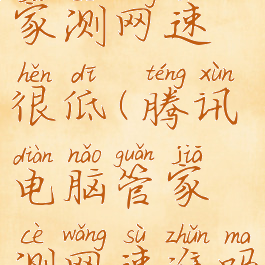 家测网速
hěn dī téng xùn
很低(腾讯
diàn nǎo guǎn jiā
电脑管家
cè wǎng sù zhǔn ma
测网速准吗